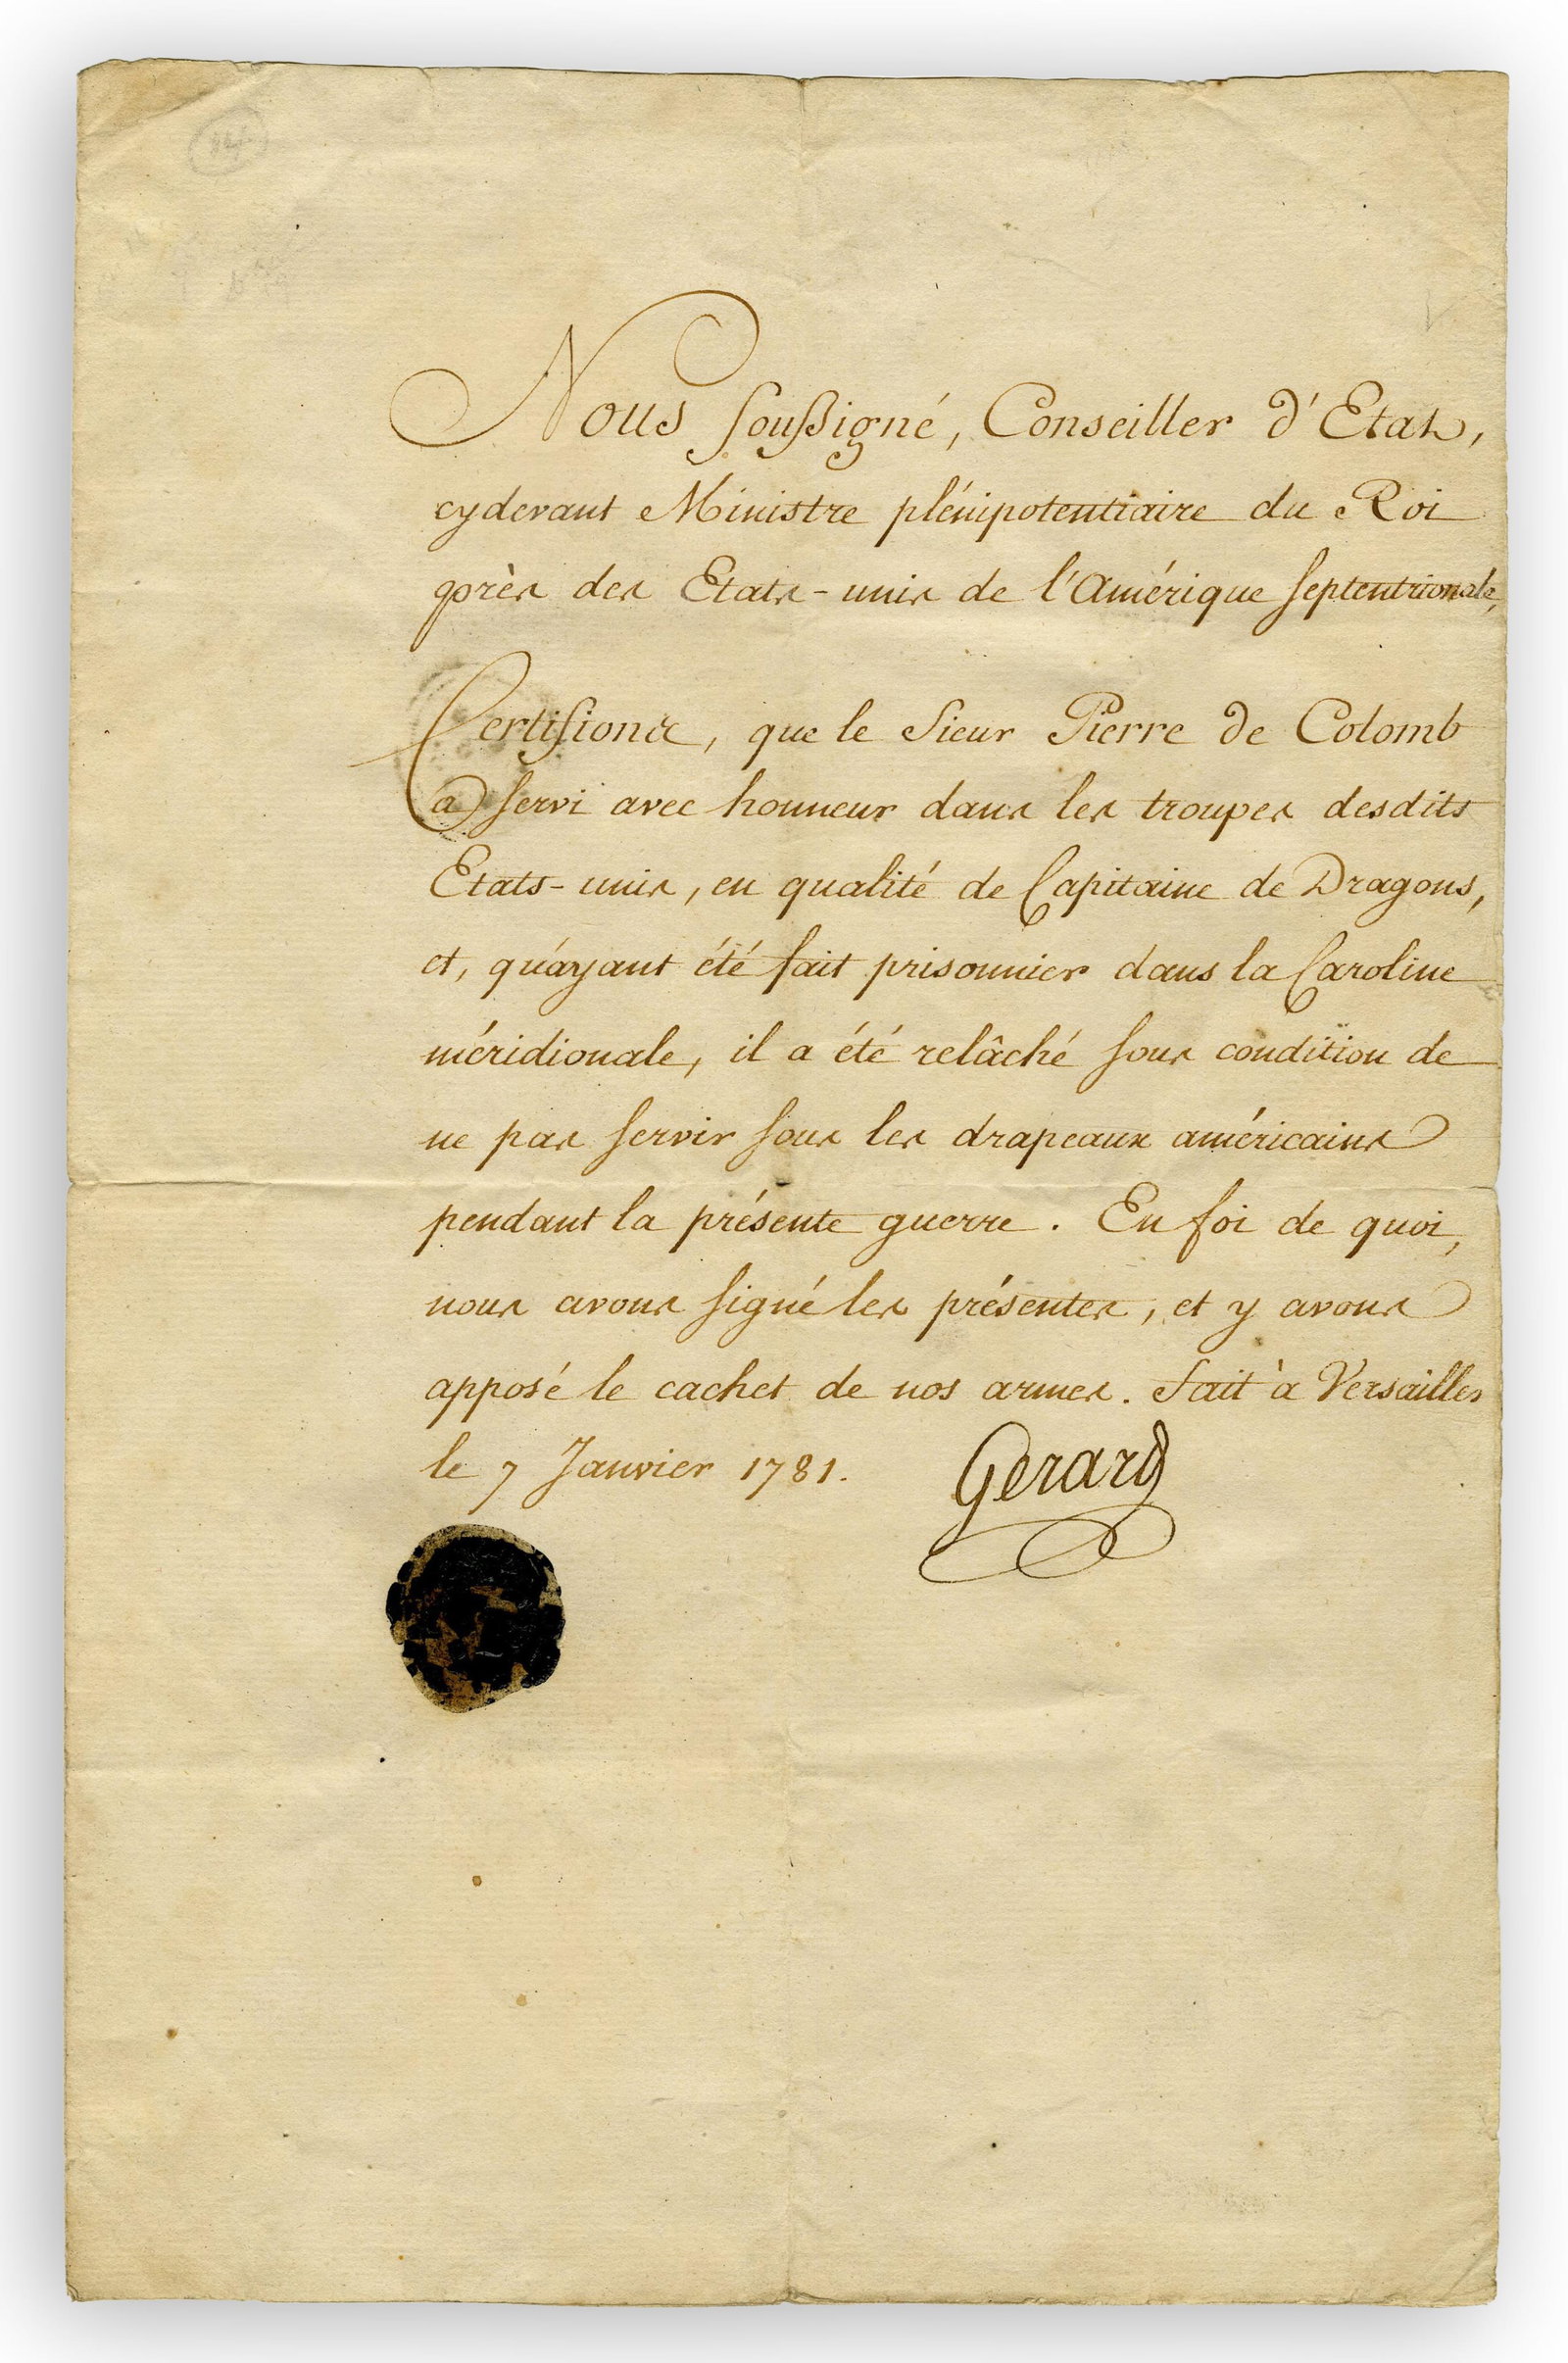 Nous soussigné, Conseiller d'Etat,
cydevant Ministre plénipotentiaire du Roi
près des Etats-unis de l'Amérique septentrionale,
Certifions, que le Sieur Pierre de Colomb
a servi avec honneur dans les troupes desdits
Etats-unis, en qualité de Capitaine de Dragons,
et, qu'ayant été fait prisonnier dans la Caroline
méridionale, il a été relâché sous condition de
ne pas servir sous les drapeaux américains
pendant la présente guerre. En foi de quoi,
nous avons signé les présentes, et y avons
apposé le cachet de nos armes. Fait à Versailles
le 7 Janvier 1781. Gerard